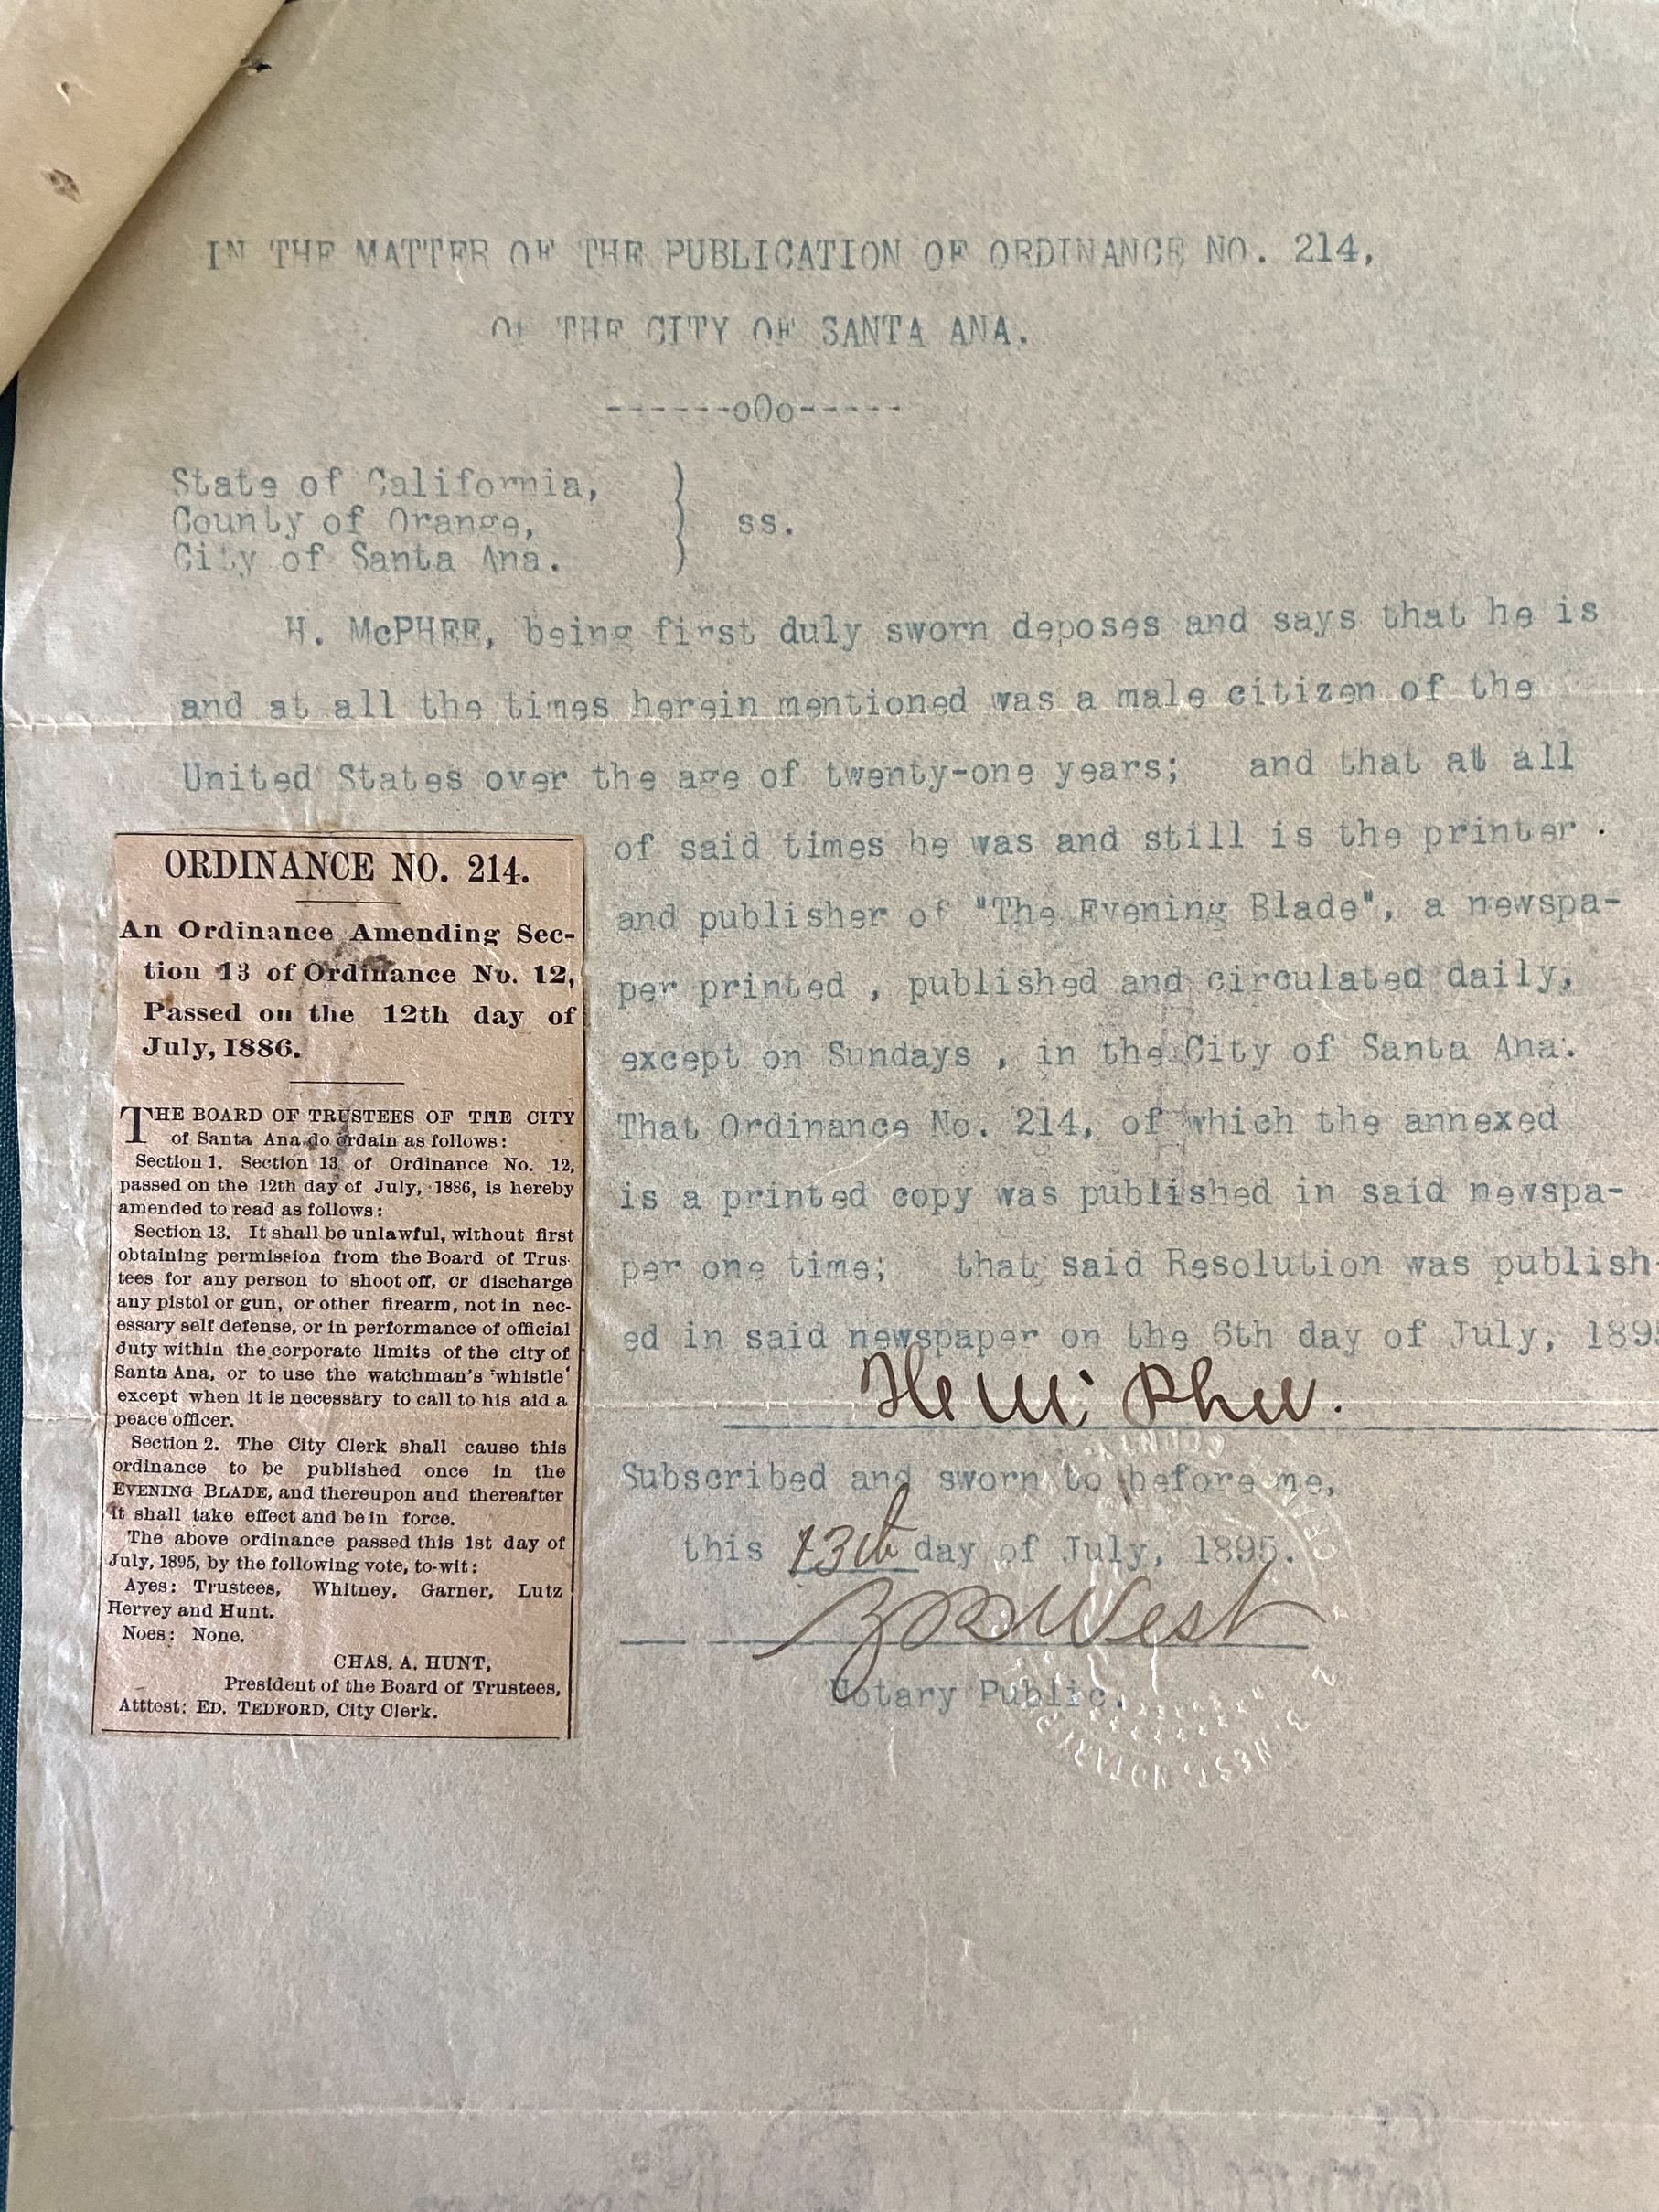 IN THE MATTER OF THE PUBLICATION OF ORDINANCE NO. 214,
OF THE CITY OF SANTA ANA.
------oOo-----
State of California,
County of Orange,
City of Santa Ana.
ss.
H. McPHEE, being first duly sworn deposes and says that he is
and at all the times herein mentioned was a male citizen of the
United States over the age of twenty-one years; and that at all
of said times he was and still is the printer
and publisher of "The Evening Blade", a newspa-
per printed , published and circulated daily,
except on Sundays , in the City of Santa Ana.
That Ordinance No. 214, of which the annexed
is a printed copy was published in said newspa-
per one time; that said Resolution was publish-
ed in said newspaper on the 6th day of July, 1895
Subscribed and sworn to before me,
this 13th day of July, 1895.
Z B West
Notary Public.
ORDINANCE NO. 214.
An Ordinance Amending Sec-
tion 13 of Ordinance No. 12,
Passed on the 12th day of
July, 1886.
THE BOARD OF TRUSTEES OF THE CITY
of Santa Ana do ordain as follows:
Section 1. Section 13 of Ordinance No. 12,
passed on the 12th day of July, 1886, is hereby
amended to read as follows:
Section 13. It shall be unlawful, without first
obtaining permission from the Board of Trus-
tees for any person to shoot off, or discharge
any pistol or gun, or other firearm, not in nec-
essary self defense, or in performance of official
duty within the corporate limits of the city of
Santa Ana, or to use the watchman's 'whistle'
except when it is necessary to call to his aid a
peace officer.
Section 2. The City Clerk shall cause this
ordinance to be published once in the
EVENING BLADE, and thereupon and thereafter
it shall take effect and be in force.
The above ordinance passed this 1st day of
July, 1895, by the following vote, to-wit:
Ayes: Trustees, Whitney, Garner, Lutz
Hervey and Hunt.
Noes: None.
CHAS. A. HUNT,
President of the Board of Trustees,
Atttest: ED. TEDFORD, City Clerk.